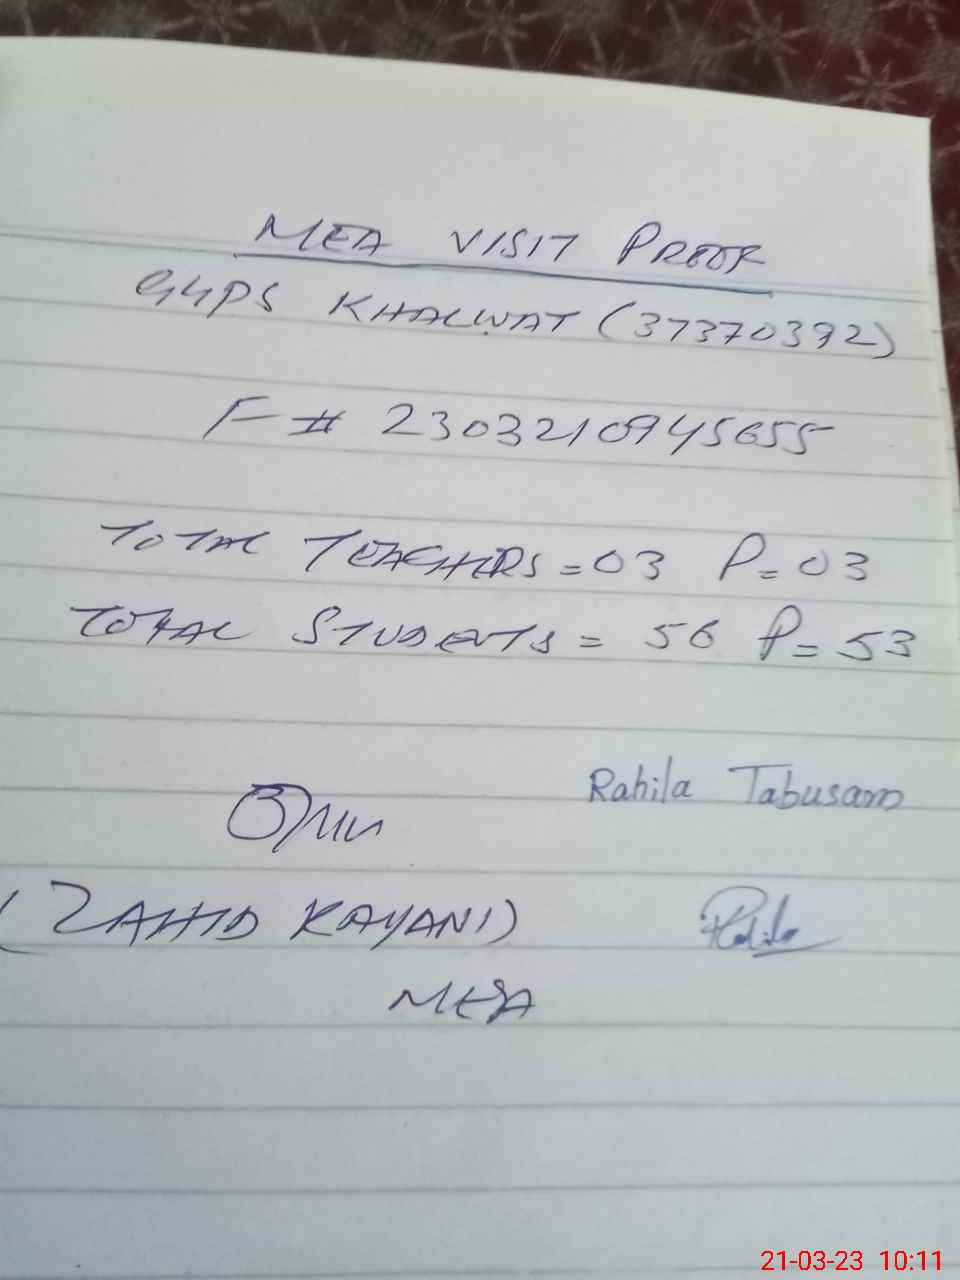 MEA VISIT PROOF
GGPS KHALWAT (37370392)
F # 2303210945655
TOTAL TEACHERS = 03 P = 03
TOTAL STUDENTS = 56 P = 53
Rahila Tabusam
(ZAHID KAYANI)
Rahila
MEA
21-03-23 10:11